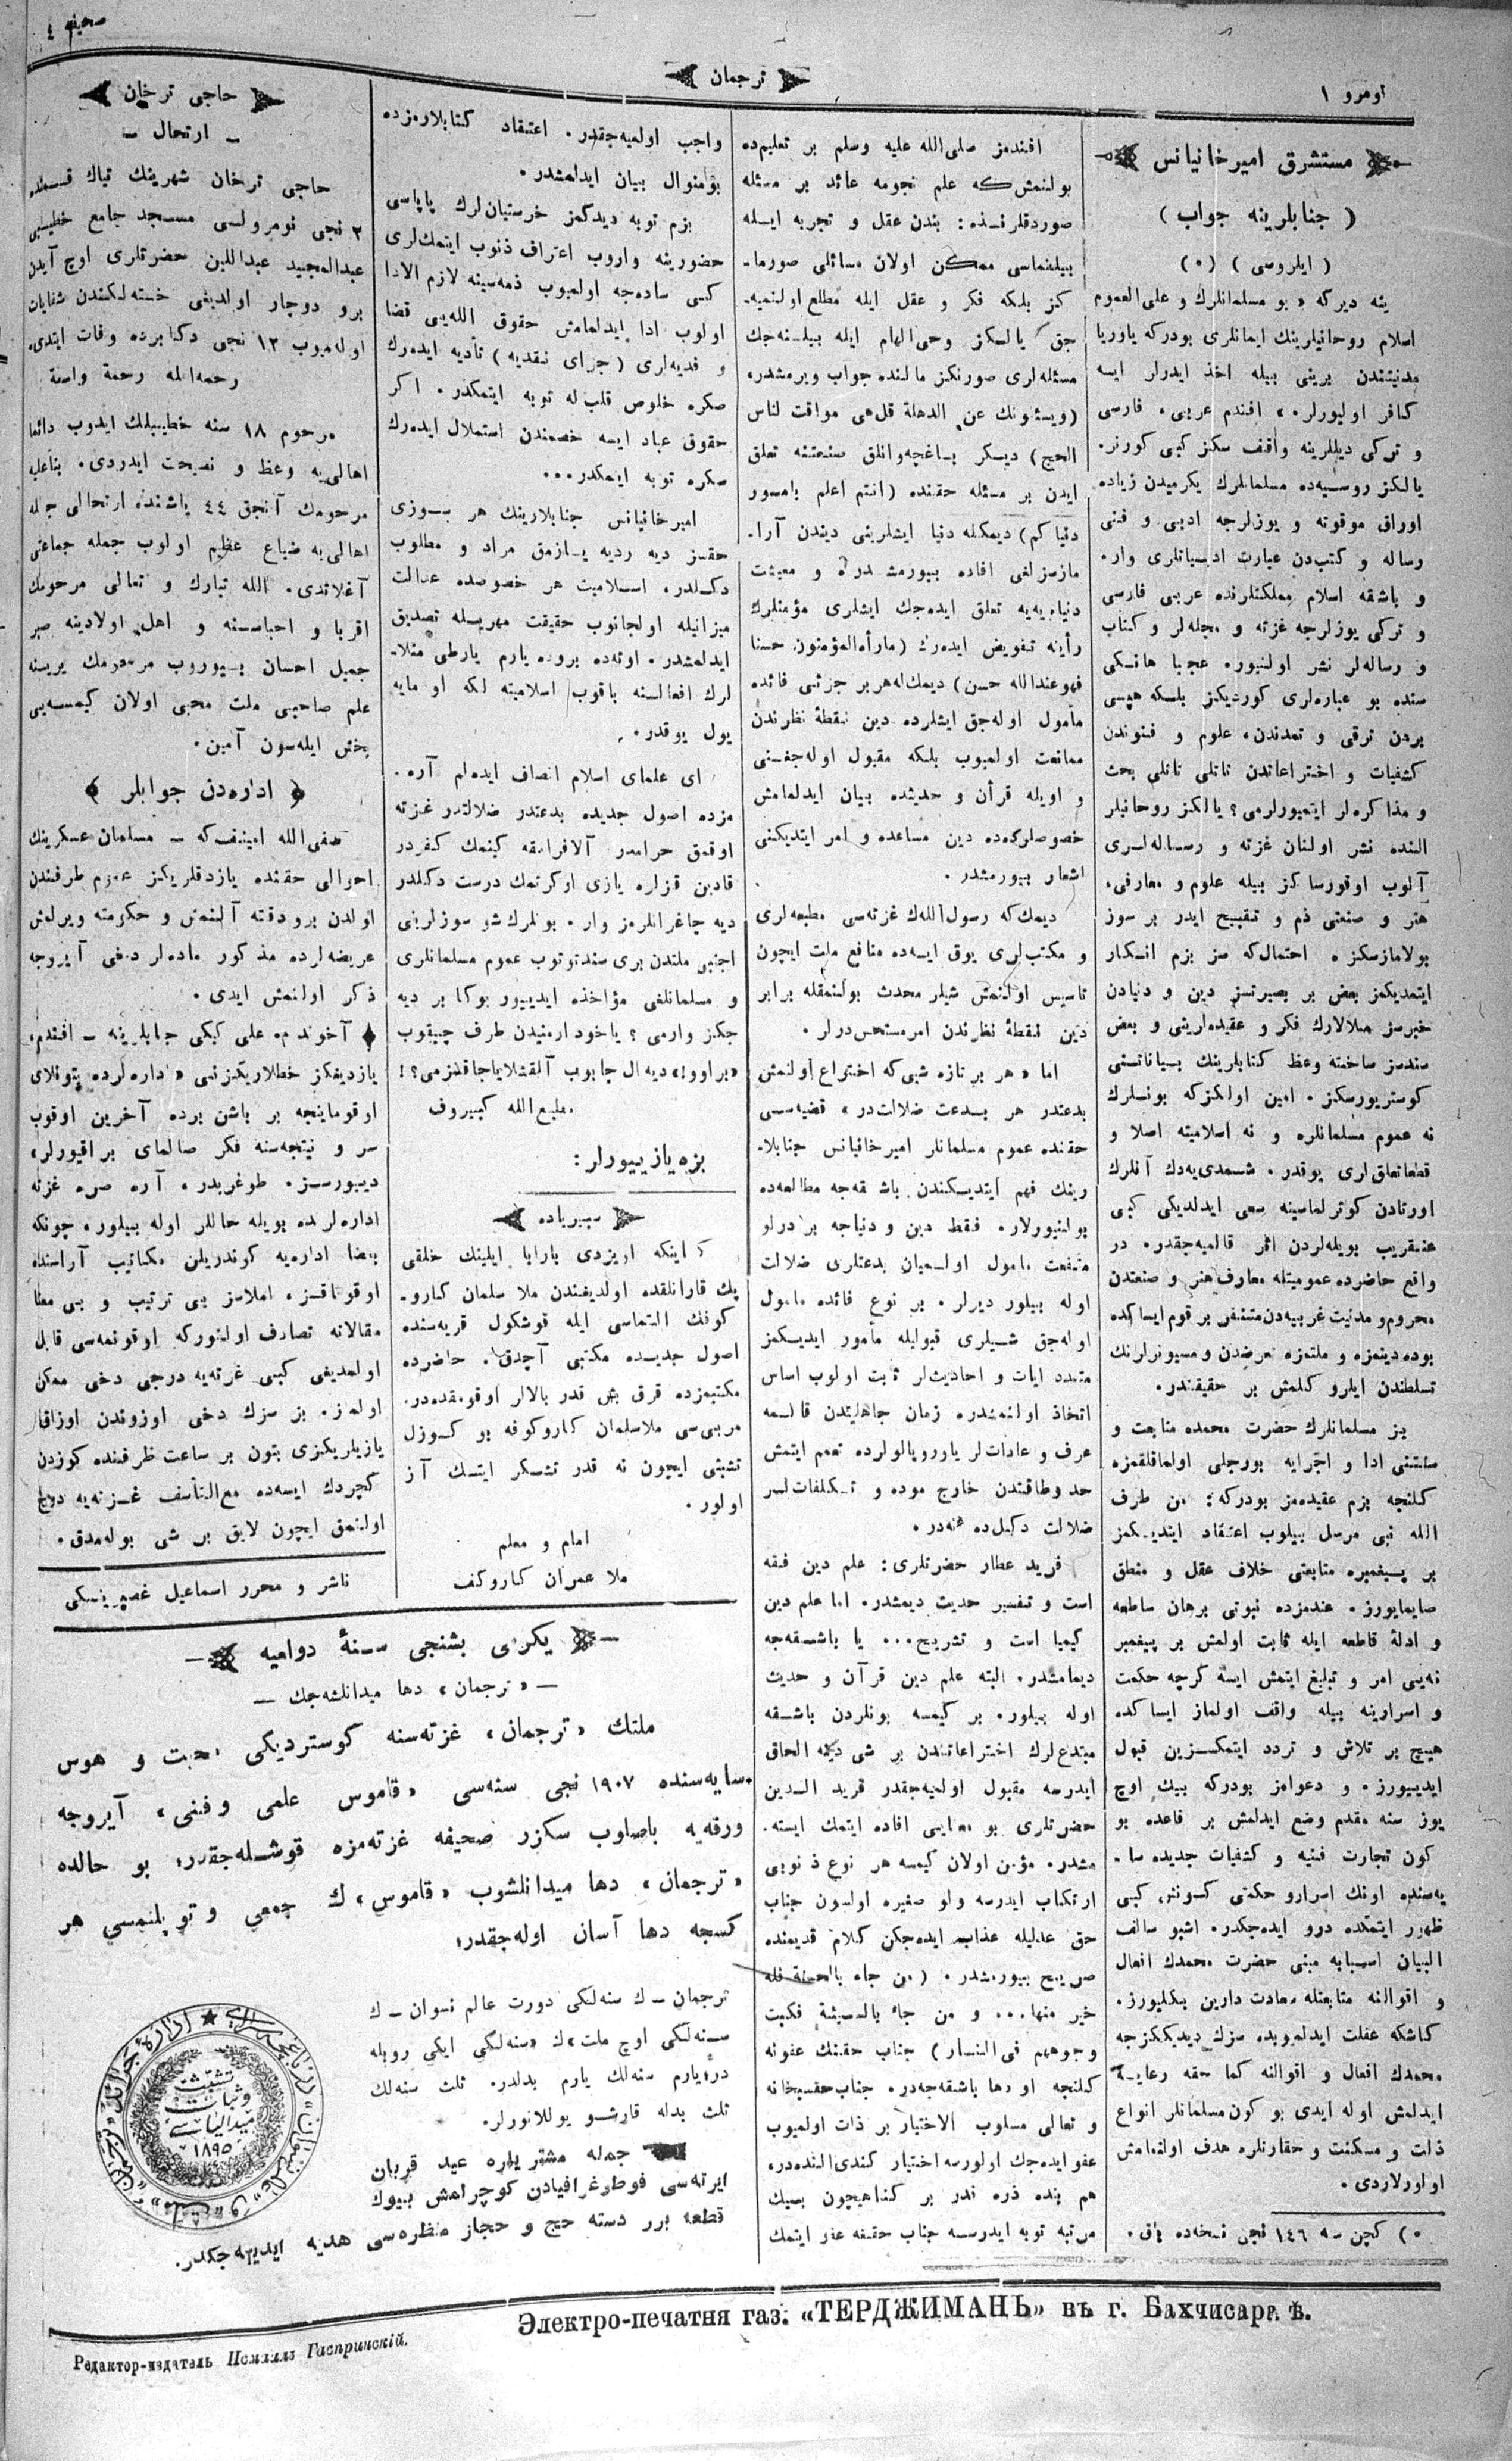 نومرو ١
ترجمان
صحيفه ٤
مستشرق اميرخانيانس
( جنابلرينه جواب )
( ايلروسى ) (٥)
ينه ديركه « بو مسلمانلرك و على العموم
اسلام روحانيلرينك ايمانلرى بودركه ياوريا
مدنيتندن برينى بيله اخذ ايدرلر ايسه
كافر اوليورلر.» افندم عربى، فارسى
و تركى ديللرينه واقف سكز كبى كورنر.
يالكز روسيه‌ده مسلمانلرك يكرميدن زياده
اوراق موقوته و يوزلرجه ادبى و فنى
رساله و كتب‌دن عبارت ادبياتلرى وار.
و باشقه اسلام مملكتلرنده عربى فارسى
و تركى يوزلرجه غزته و مجله‌لر و كتاب
و رساله‌لر نشر اولنيور. عجبا هانكى
سنده بو عباره‌لرى كورديكز بلكه هپسى
بردن ترقى و تمدندن، علوم و فنوندن
كشفيات و اختراعاتدن تاتلى تاتلى بحث
و مذاكره‌لر ايتميورلرمى؟ يالكز روحانيلر
النده نشر اولنان غزته و رساله‌لرى
آلوب اوقورساكز بيله علوم و معارفى،
هنر و صنعتى ذم و تقبيح ايدر بر سوز
بولامازسكز. احتمال‌كه سز بزم انكار
ايتمديكمز بعض بر بصيرتسز دين و دنيادن
خبرسز ملالارك فكر و عقيده‌لرينى و بعض
سندسز ساخته وعظ كتابلرينك بياناتنى
كوستريورسكز. امين اولكزكه بونلرك
نه عموم مسلمانلره و نه اسلاميته اصلا و
قطعا تعلق‌لرى يوقدر. شمدى‌يه‌دك آنلرك
اورتادن كوترلماسينه سعى ايدلديكى كبى
عنقريب بويله‌لردن اثر قالميه‌جقدر. در
واقع حاضرده عموميتله معارف هنر و صنعتدن
محروم و مدنيت غربيه‌دن متنفر بر قوم ايساكده
بوده دينمزه و ملتمزه تعرضدن و مسيونرلرنك
تسلطندن ايلرو كلمش بر حقيقتدر.
بز مسلمانلرك حضرت محمده متابعت و
سنتنى ادا و اجرايه بورجلى اولماقلقمزه
كلنجه بزم عقيده‌مز بودركه؛ من طرف
الله نبى مرسل بيلوب اعتقاد ايتديكمز
بر پيغمبره متابعتى خلاف عقل و منطق
صايمايورز. عندمزده نبوتى برهان ساطعه
و ادلهٔ قاطعه ايله ثابت اولمش بر پيغمبر
نه‌يى امر و تبليغ ايتمش ايسه كرچه حكمت
و اسرارينه بيله واقف اولماز ايساكده
هيچ بر تلاش و تردد ايتمكسزين قبول
ايديبورز. و دعوامز بودركه بيك اوچ
يوز سنه مقدم وضع ايدلمش بر قاعده بو
كون تجارت فنيه و كشفيات جديده سا-
يه‌سنده اونك اسرارو حكمتى كونش كبى
ظهور ايتمكده درو ايده‌جكدر. اشبو سالف
البيان اسبابه مبنى حضرت محمدك افعال
و اقوالنه متابعتله سعادت دارين بكليورز.
كاشكه غفلت ايدلميوبده سزك ديديككزجه
محمدك افعال و اقوالنه كما حقه رعايت
ايدلمش اوله ايدى بو كون مسلمانلر انواع
ذلت و مسكنت و حقارتلره هدف اولنمامش
اولورلاردى.
٥) كچن سه ١٤٦ نجى نسخه‌ده باق.
افندمز صلى الله عليه وسلم بر تعليم‌ده
بولنمش‌كه علم نجومه عائد بر مسئله
صوردقلرنده: بندن عقل و تجربه ايله
بيلنماسى ممكن اولان مسائلى صورما-
كز بلكه فكر و عقل ايله مطلع اولنميه-
جق يالكز وحى الهام ايله بيلنه‌جك
مسئله‌لرى صورنكز مالنده جواب ويرمشدر.
(ويسئلونك عن الاهلة قل هى مواقيت للناس
الحج) ديسكر باغچه‌وانلق صنعتنه تعلق
ايدن بر مسئله حقنده (انتم اعلم بامور
دنياكم) ديمكله دنيا ايشلرينى ديندن آرا-
مازسزلغى افاده بيورمشدر. و معيشت
دنياويه‌يه تعلق ايده‌جك ايشلرى مؤمنلرك
رأينه تفويض ايده‌رك (ماراه المؤمنون حسنا
فهو عندالله حسن) ديمك‌له هر بر جزئى فائده
مأمول اوله‌جق ايشلرده دين نقطهٔ نظرندن
ممانعت اولميوب بلكه مقبول اوله‌جغنى
و اويله قرأن و حديثده بيان ايدلمامش
خصوصلرده‌ده دين مساعده و امر ايتديكنى
اشعار بيورمشدر.
ديمك‌كه رسول الله‌ك غزته‌سى مطبعه‌لرى
و مكتب‌لرى يوق ايسه‌ده منافع ملت ايچون
تاسيس اولنمش شيلر محدث بولنمقله برابر
دين نقطهٔ نظرندن امر مستحسن‌درلر.
اما « هر بر تازه شيى‌كه اختراع اولنمش
بدعتدر هر بدعت ضلالت‌در» قضيه‌سى
حقنده عموم مسلمانلر اميرخانيانس جنابلا-
رينك فهم ايتديكندن باشقه‌جه مطالعه‌ده
بولنيورلار. فقط دين و دنياجه بر درلو
منفعت مامول اولميان بدعتلرى ضلالت
اوله بيلور ديرلر. بر نوع فائده مامول
اوله‌جق شيلرى قبوليله مأمور ايديكمز
متعدد ايات و احاديث‌لر ثابت اولوب اساس
اتخاذ اولنمشدر. زمان جاهليتدن قالمه
عرف و عادات‌لر ياوروپالولرده تعمم ايتمش
حد وطاقتدن خارج موده و تكلفات‌لر
ضلالت دكل‌ده نه‌در.
فريد عطار حضرتلرى: علم دين فقه
است و تفسير حديث ديمشدر. اما علم دين
كيميا است و تشريح... يا باشقه‌جه
ديمامشدر. البته علم دين قرآن و حديث
اوله بيلور. بر كيمسه بونلردن باشقه
مبتدع‌لرك اختراعاتندن بر شى دينه الحاق
ايدرسه مقبول اولميه‌جقدر فريد الدين
حضرتلرى بو معنايى افاده ايتمك ايسته-
مشدر. مؤمن اولان كيمسه هر نوع ذنوبى
ارتكاب ايدرسه ولو صغيره اولسون جناب
حق عدليله عذاب ايده‌جكن كلام قديمنده
صريح بيورمشدر. (من جاء بالحسنة فله
خير منها... و من جاء بالسيئة فكبت
وجوههم فى النار) جناب حقنك عفونه
كلنجه او دها باشقه‌جه‌در. جناب حق سبحانه
و تعالى مسلوب الاختيار بر ذات اولميوب
عفو ايده‌جك اولورسه اختيار كندى النده‌در،
هم بنده ذره قدر بر كناهيچون بيك
مرتبه توبه ايدرسه جناب حقيقه عفو ايتمك
واجب اولميه‌جقدر. اعتقاد كتابلارمزده
بو منوال بيان ايدلمشدر.
بزم توبه ديدكمز خرستيان‌لرك پاپاسى
حضورينه واروب اعتراف ذنوب ايتمك‌لرى
كبى ساده‌جه اولميوب ذمه‌سينه لازم الادا
اولوب ادا ايدلمامش حقوق الله‌يى قضا
و فديه‌لرى (جزاى نقديه) تأديه ايده‌رك
صكره خلوص قلب‌له توبه ايتمكدر. اكر
حقوق عباد ايسه خصمندن استحلال ايده‌رك
صكره توبه ايتمكدر...
اميرخانيانس جنابلارينك هر سوزى
حقسز ديه رديه يازمق مراد و مطلوب
دكلدر، اسلاميت هر خصوصده عدالت
ميزانيله اولجانوب حقيقت مهريله تصديق
ايدلمشدر. اوته‌ده بروده يارم يارطى مثلا-
لرك افعالنه باقوب اسلاميته لكه او مايه
يول يوقدر.
اى علماى اسلام انصاف ايده‌لم آره-
مزده اصول جديده بدعتدر ضلالتدر غزته
اوقمق حرامدر آلافرانقه كينمك كفردر
قادين قزلره يازى اوكرتمك درست دكلدر
ديه چاغرانلرمز وار. بونلرك شو سوزلرينى
اجنبى ملتدن برى سند توتوب عموم مسلمانلرى
و مسلمانلغى مؤاخذه ايدييور بوكا بر ديه
جكز وارمى؟ ياخود ارمنيدن طرف چيقوب
«براوو!» ديه ال چابوب آلقشلاياجاقمزمى؟!
مطيع الله كبيروف
بزه يازييورلر:
سيبرياده
اينكه اريزدى بارابا ايلينك خلقى
پك قارانلقده اولديغندن ملا سلمان كارو-
كوفك التماسى ايله قوشكول قريه‌سنده
اصول جديده مكتبى آچدق. حاضرده
مكتبمزده قرق بش قدر بالالر اوقومقده‌در.
مربى‌سى ملا سلمان كاروكوفه بو كوزل
تشبثى ايچون نه قدر تشكر ايتسك آز
اولور.
امام و معلم
ملا عمران كاروكف
حاجى ترخان
- ارتحال -
حاجى ترخان شهرينك تياك قسمنده
٢ نجى نومرولى مسجد جامع خطيبى
عبدالمجيد عبداللين حضرتلرى اوچ آيدن
برو دوچار اولديغى خسته‌لكندن شفاياب
اوله‌ميوب ١٢ نجى دكابرده وفات ايتدى.
رحمه‌الله رحمة واسعة
مرحوم ١٨ سنه خطيبلك ايدوب دائما
اهالى‌يه وعظ و نصيحت ايدردى. بناءعليه
مرحومك آنجق ٤٤ ياشنده ارتحالى جمله
اهالى‌يه ضياع عظيم اولوب جمله جماعتى
آغلاتدى. الله تبارك و تعالى مرحومك
اقربا و احباسنه و اهل اولادينه صبر
جميل احسان بيوروب مرحومك يرينه
علم صاحبى ملت محبى اولان كيمسه‌يى
بخش ايله‌سون آمين.
﴿ اداره‌دن جوابلر ﴾
صفى الله امينف‌كه - مسلمان عسكرينك
احوالى حقنده يازدقلريكز عموم طرفندن
اولدن بروده‌قته آلنمش و حكومته ويرلمش
عريضه‌لرده مذكور ماده‌لر دخى آيروجه
ذكر اولنمش ايدى.
آخوند م. على كبكى جنابلرينه - افندم،
يازديغكز خطلاريكزنى «داره‌لرده بتونلاى
اوقوماينجه بر باشن برده آخرين اوقوب
سر و نتيجه‌سنه فكر صالماى براقيورلر»
ديبورسز. طوغريدر. آره صره غزته
اداره‌لرنده بويله حاللر اوله بيلور. چونكه
بعضا اداره‌يه كوندريلن مكاتيب آراسنده
اوقوناقسز، املاسز بى ترتيب و بى معنا
مقالاته تصادف اولنوركه اوقونمه‌سى قابل
اولمديغى كبى غزته‌يه درجى دخى ممكن
اولمز. بز سزك دخى اوزوندن اوزاقا
يازيلريكزى بتون بر ساعت ظرفنده كوزدن
كچردك ايسه‌ده مع التأسف غزته‌يه درج
اولنمق ايچون لايق بر شى بوله‌مدق.
ناشر و محرر اسماعيل غصپرينسكى
يكرمى بشنجى سنهٔ دواميه
- «ترجمان» دها ميدانلشه‌جك -
ملتك «ترجمان» غزته‌سنه كوسترديكى محبت و هوس
سايه‌سنده ١٩٠٧ نجى سنه‌سى «قاموس علمى وفنى» آيروجه
ورقه‌يه باصلوب سكزر صحيفه غزته‌مزه قوشله‌جقدر؛ بو حالده
«ترجمان» دها ميدانلشوب «قاموس»ك جمعى و توپلنمسي هر
كسجه دها آسان اوله‌جقدر؛
ترجمان - ك سنه‌لكى دورت عالم نسوان - ك
سنه‌لكى اوچ ملت»ك «سنه‌لكى ايكى روبله
در؛ يارم سنه‌لك يارم بدلدر. ثلث سنه‌لك
ثلث بدله قارشو يوللانورلر.
جمله مشتريلره عيد قربان
ايرته‌سى فوطوغرافيادن كوچرلمش بيوك
قطعه برر دسته حج و حجاز منظره‌سى هديه ايديله‌جكدر.
١٨٩٥
Электро-печатня газ. «ТЕРДЖИМАНЪ» въ г. Бахчисараѣ.
Редактор-издатель Исмаилъ Гаспринскій.